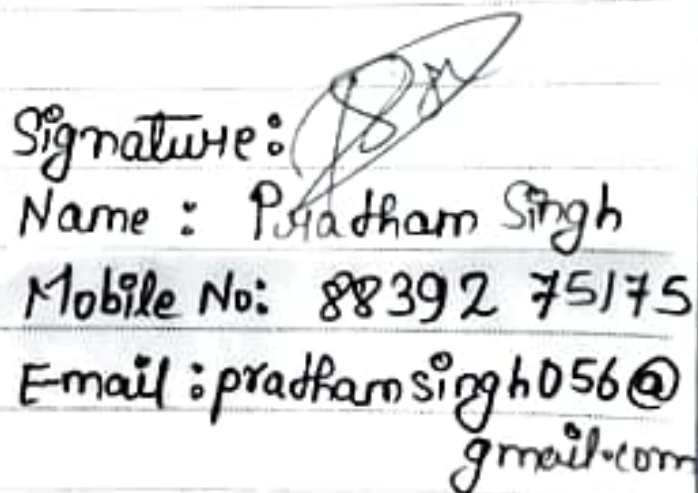 Signature:
Name : Pratham Singh
Mobile No: 88392 75175
E-mail : prathamsingh056@
gmail.com